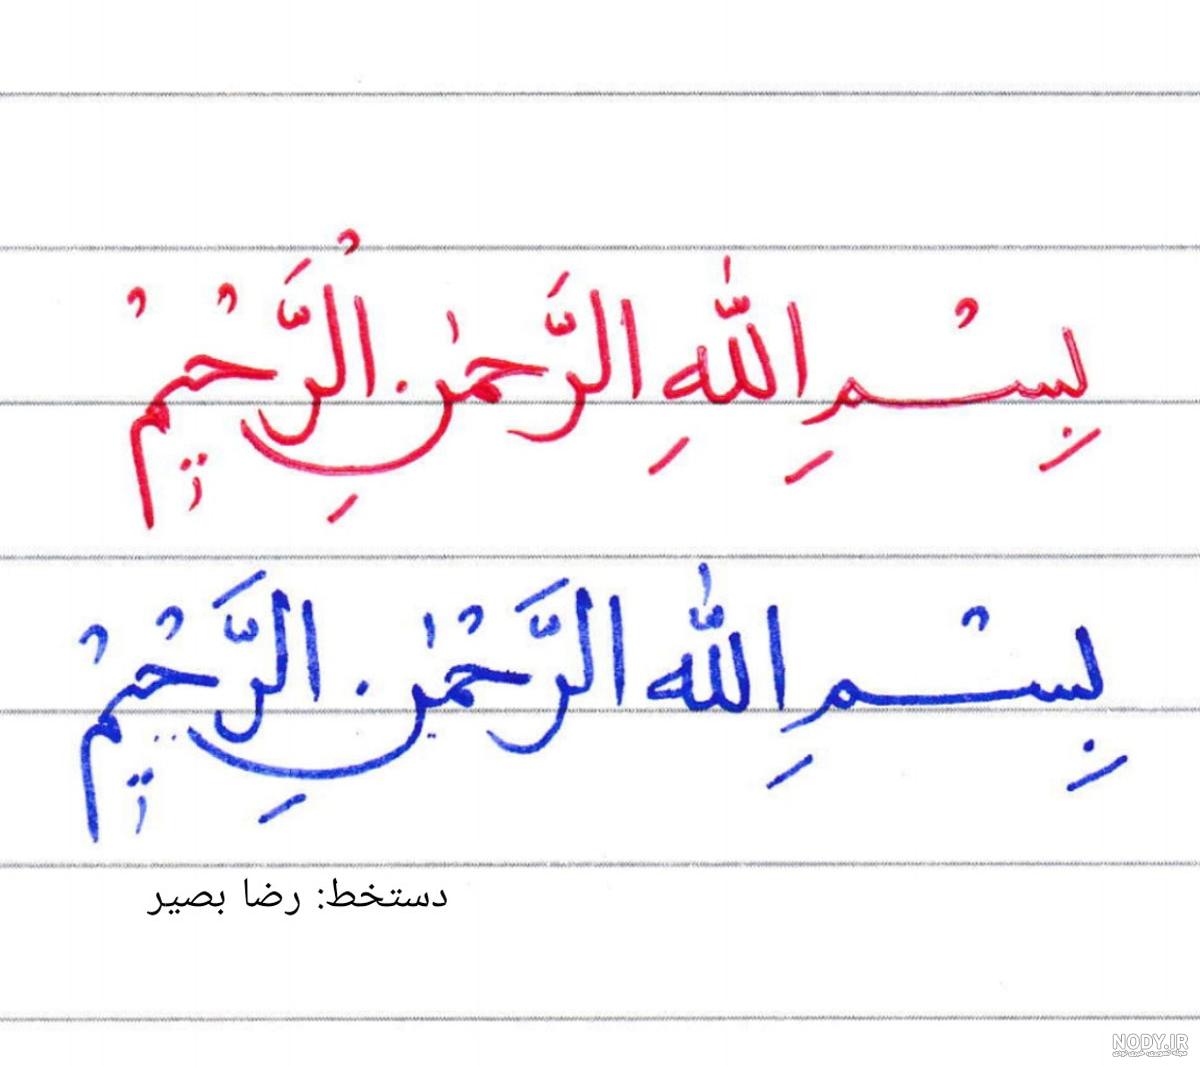 بِسْمِ اللّٰهِ الرَّحمٰنِ الرَّحْیمْ
بِسْمِ اللّٰهِ الرَّحْمٰنِ الرَّحْیمْ
دستخط: رضا بصیر
NODY.IR